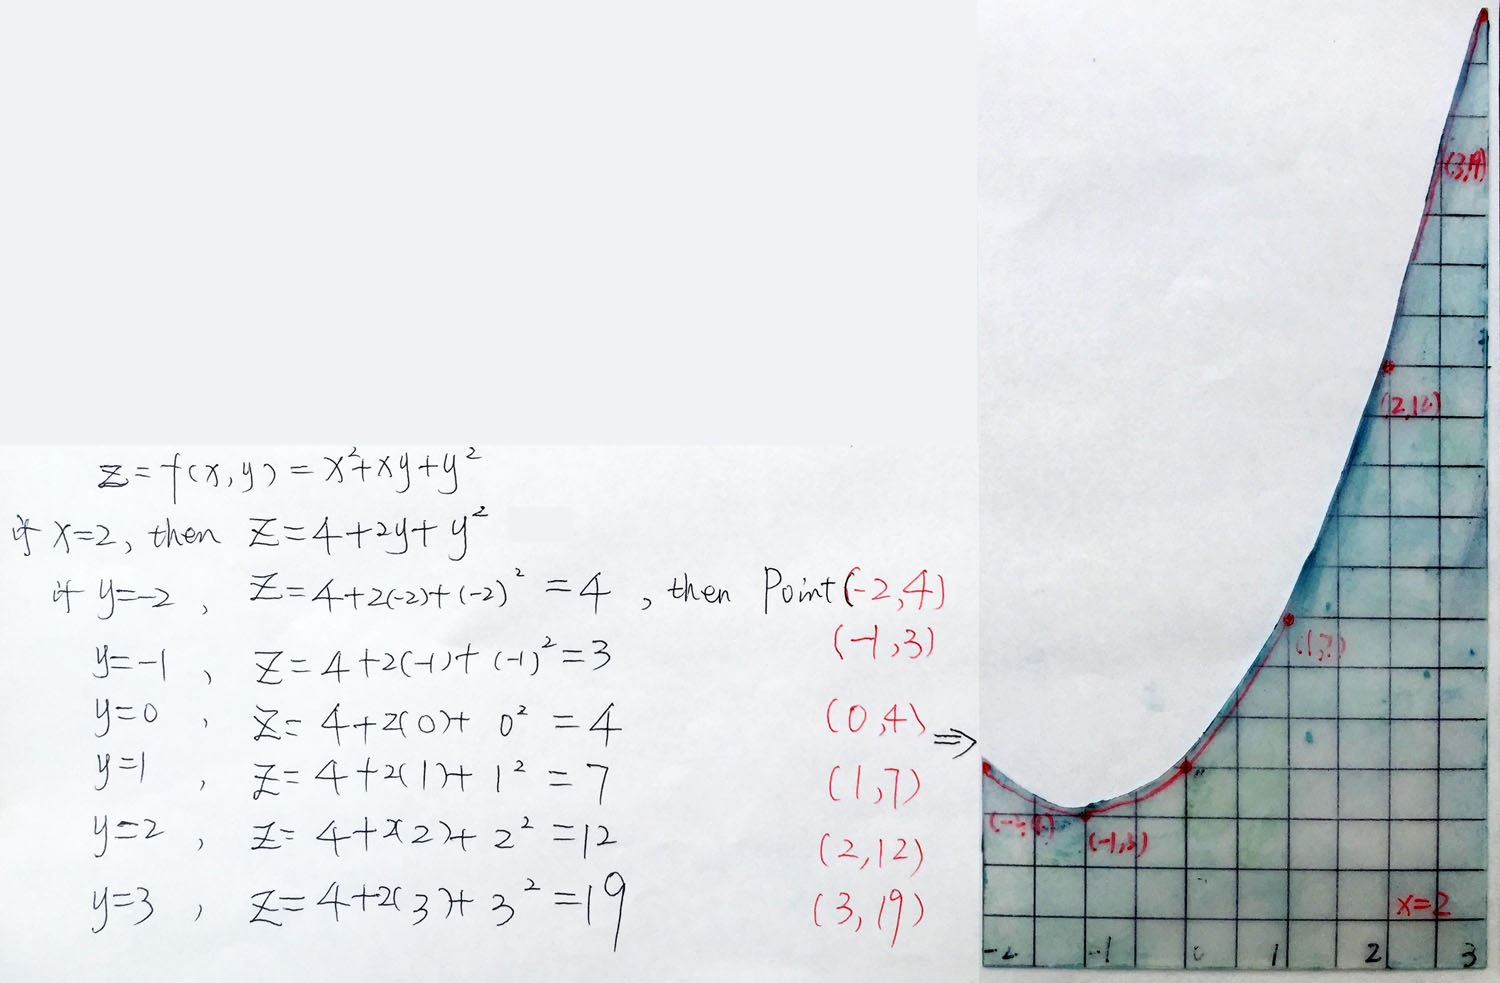 z = f(x,y) = x²+xy+y²
if x=2, then z=4+2y+y²
if y=-2, z=4+2(-2)+(-2)² = 4, then Point (-2,4)
y=-1, z=4+2(-1)+(-1)²=3 (-1,3)
y=0, z=4+2(0)+0²=4 (0,4) ⇒
y=1, z=4+2(1)+1²=7 (1,7)
y=2, z=4+2(2)+2²=12 (2,12)
y=3, z=4+2(3)+3²=19 (3,19)
(3,19)
(2,12)
(1,7)
(-2,4) (-1,3)
x=2
-2 -1 0 1 2 3